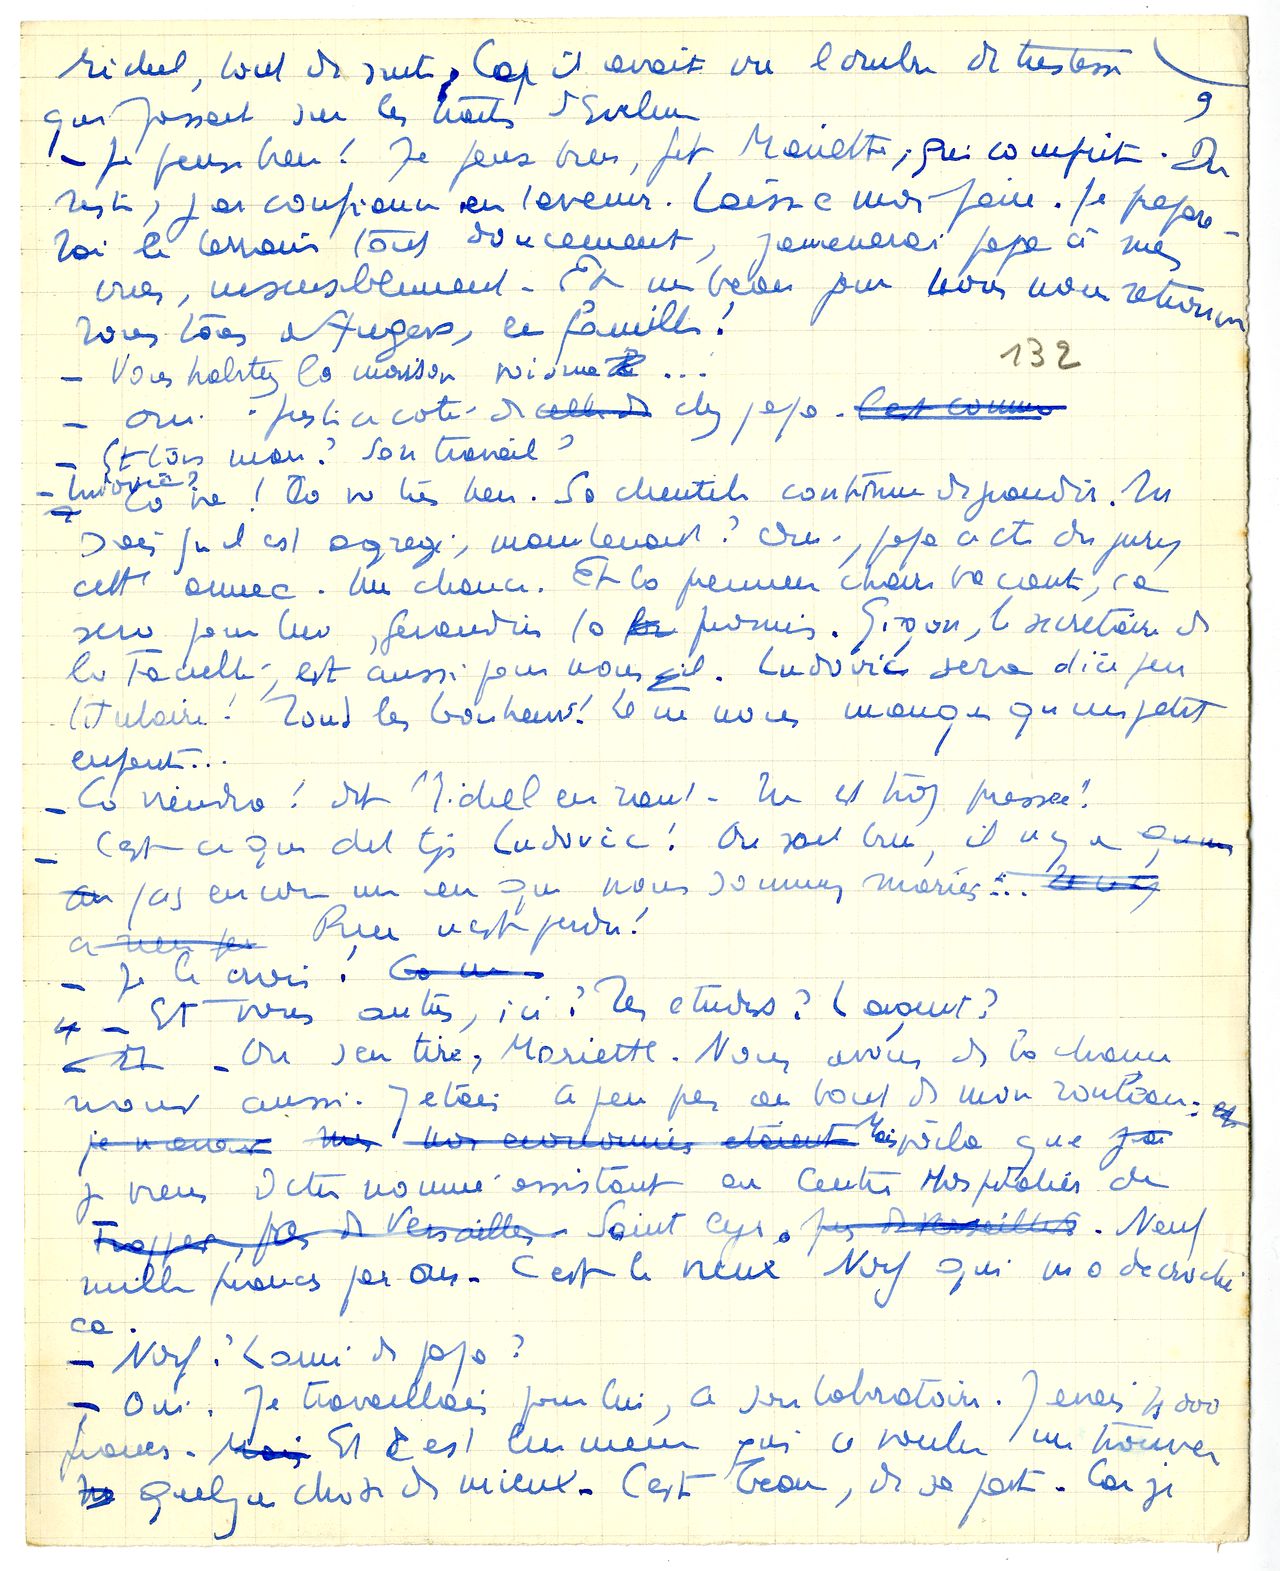 Michel, tout de suite, Car il avait vu l'ombre de tristesse
9
qui passait sur les traits d'Evelyne
– Je pense bien! Je pense bien, fit Mariette, qui comprit. Du
reste, j'ai confiance en l'avenir. Laisse moi faire. Je prépare-
rai le terrain tout doucement, j'amènerai papa à mes
vues, insensiblement – Et un beau jour nous nous retrouve
rons tous à Angers, en famille!
132
– Vous habitez la maison voisine ...
– Oui. juste à coté de celle de chez papa – C'est comme
– Et ton mari? Son travail?
– Ludovic?
Ca va! Ca va très bien. Sa clientèle continue de grandir. Tu
sais qu'il est agrégé, maintenant? Oui, papa a été du jury
cette année. Une chance. Et la première chaire vacante, ça
sera pour lui, Géraudin l'a promis. Gigon, le secrétaire de
la Faculté, est aussi pour nous. Ludovic sera d'ici peu
titulaire! Tous les bonheurs! Il ne nous manque qu'un petit
enfant...
– Ca viendra! dit Michel en riant – Tu es trop pressée!
– C'est ce que dit tjs Ludovic! On sait bien, il n'y a qu'un
an pas encore un an que nous sommes mariés...
a rien per Rien n'est perdu!
– Je le crois! Ca ne
– Et vous autres, ici? Tes études? L'argent?
– Et – On s'en tire, Mariette. Nous avons de la chance
nous aussi. J'étais à peu près au bout de mon rouleau: et
je n'avais mes nos économies étaient Mais voilà que j'ai
je viens d'être nommé assistant au Centre Hospitalier de
Trappes, près de Versailles – Saint Cyr. près de Versailles. Neuf
mille francs par an – C'est le vieux Norf qui m'a décroché
ça.
– Norf? L'ami de papa?
– Oui. Je travaillais pour lui, à son laboratoire. J'avais 4 000
francs – Mais Et c'est lui même qui a voulu me trouver
quelque chose de mieux – C'est beau, de sa part – Car je